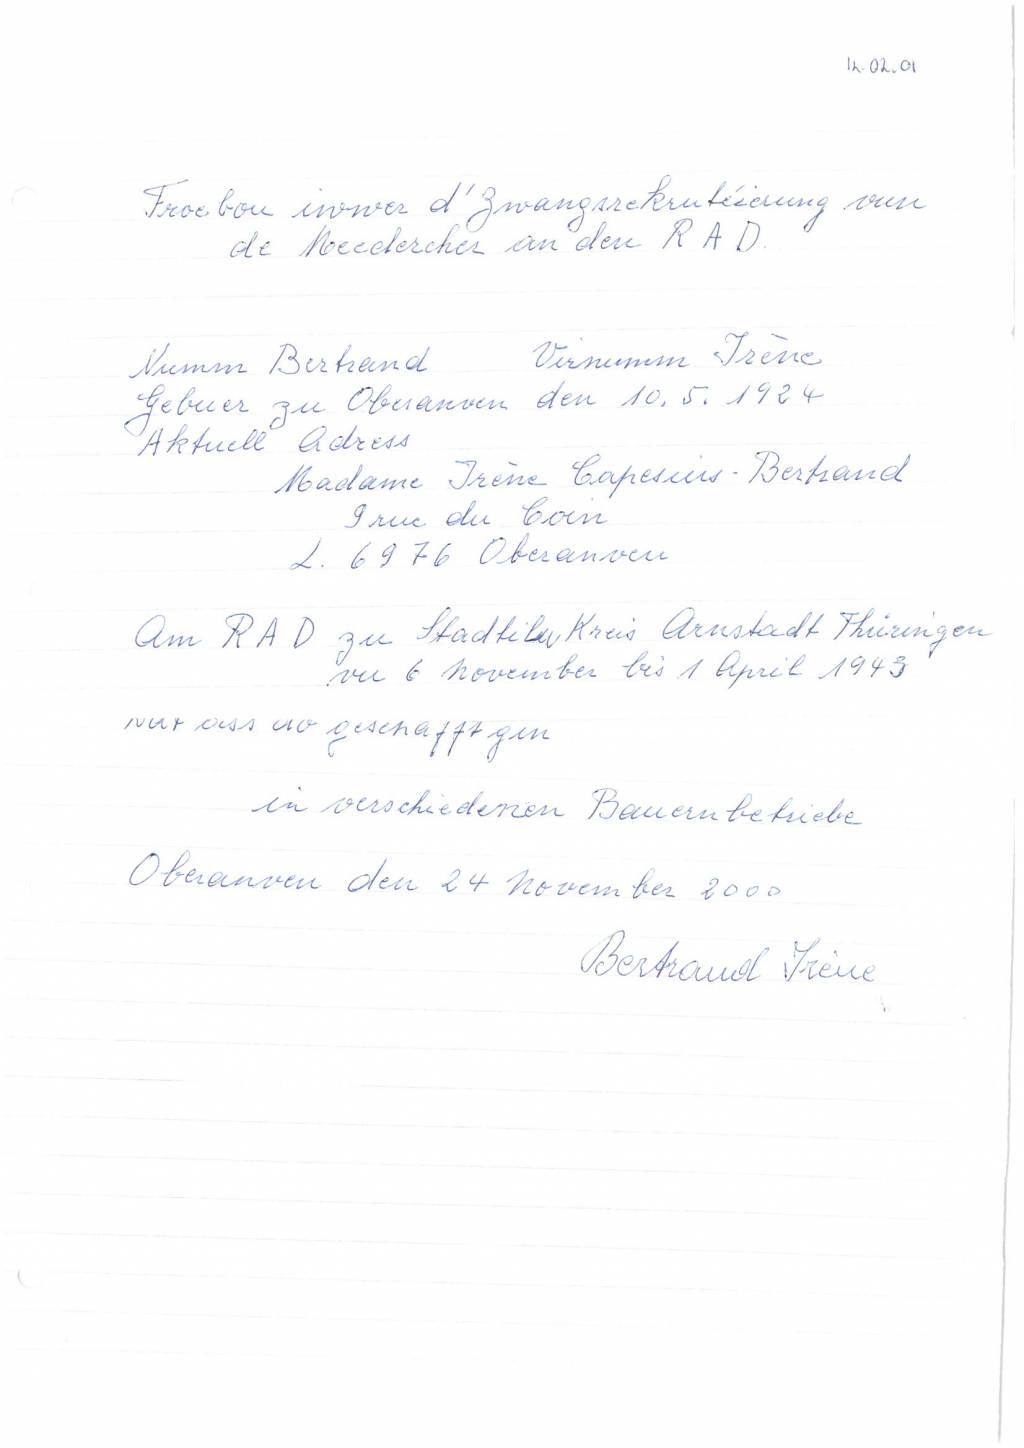 12.02.01
Froebou iwwer d'Zwangsrekrutéierung vun
de Meedercher an den R A D.
Numm Bertrand Virnumm Irène
Gebuer zu Oberanven den 10. 5. 1924
Aktuell Adress
Madame Irène Capesius-Bertrand
9 rue du Coin
L. 6976 Oberanven
Am R A D zu Stadtilm Kreis Arnstadt Thüringen
vu 6 November bis 1 April 1943
wat ass do geschafft gin
in verschiedenen Bauernbetriebe
Oberanven den 24 November 2000
Bertrand Irène